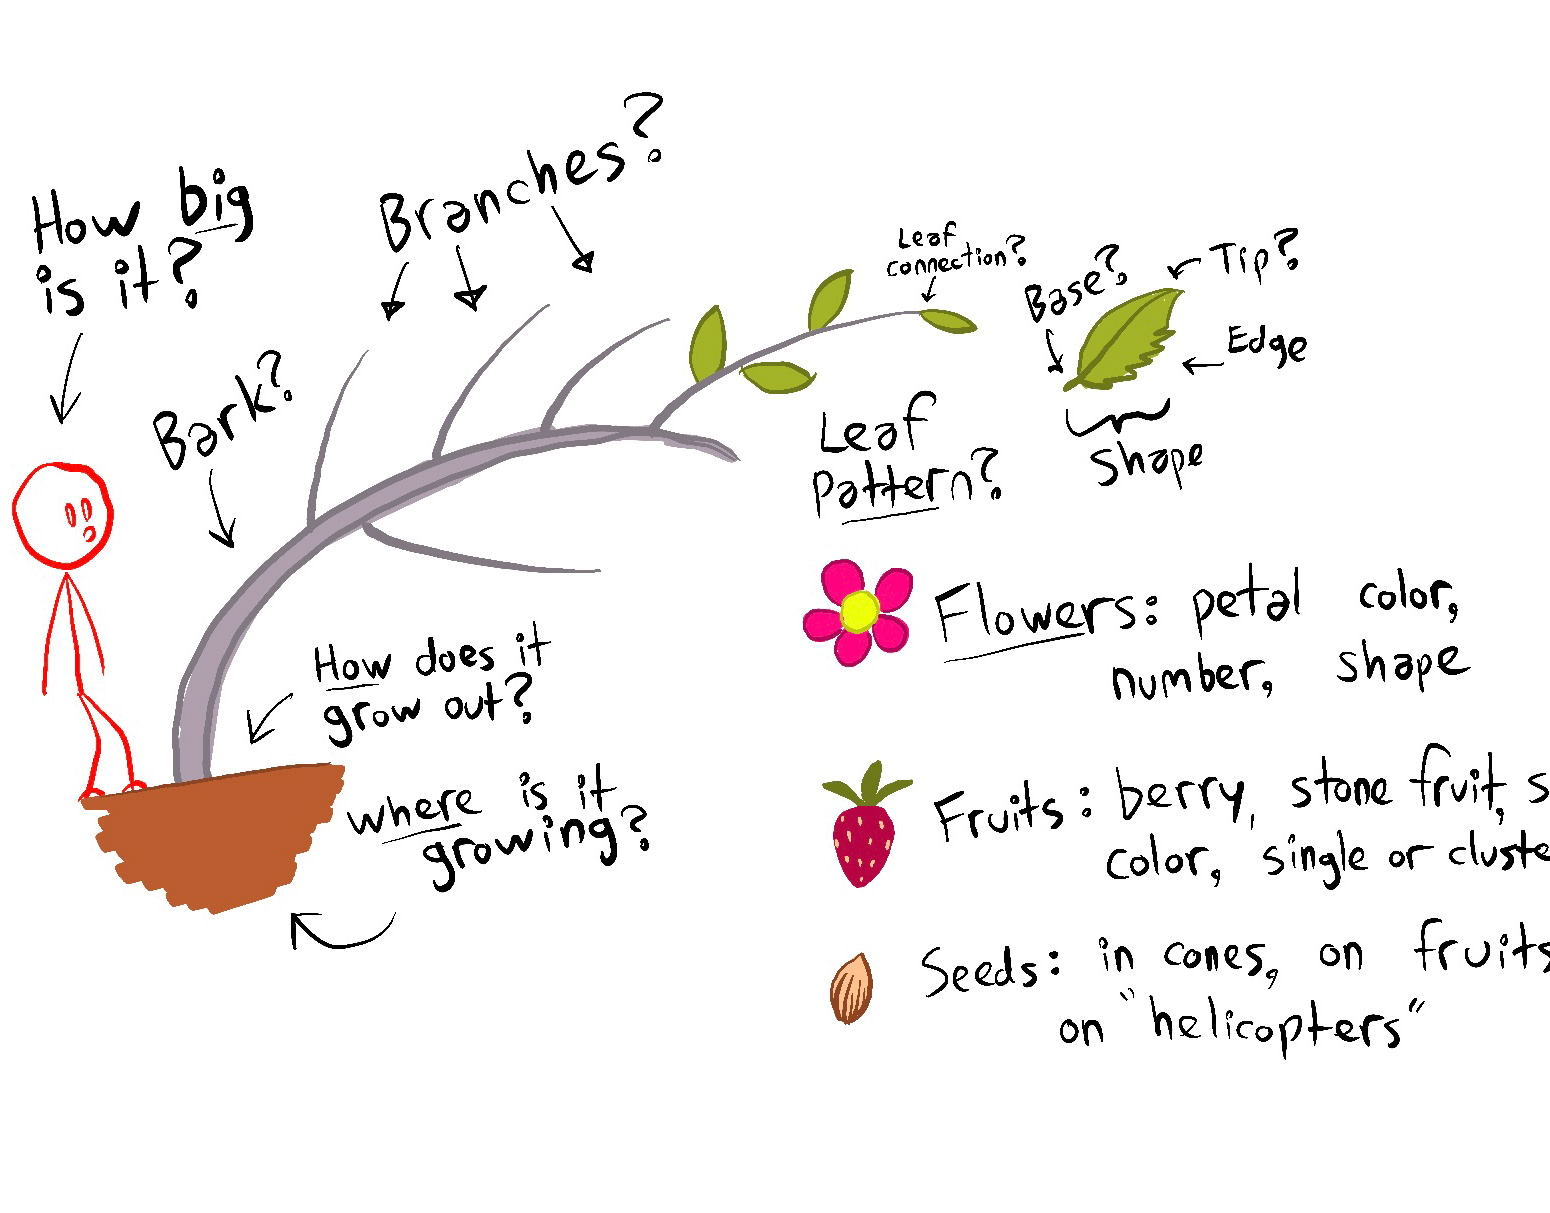 How big
is it?
Branches?
Bark?
Leaf
connection?
Base?
Tip?
Edge
shape
Leaf
pattern?
How does it
grow out?
where is it
growing?
Flowers: petal color,
number, shape
Fruits: berry, stone fruit, s
color, single or cluste
Seeds: in cones, on fruits
on "helicopters"